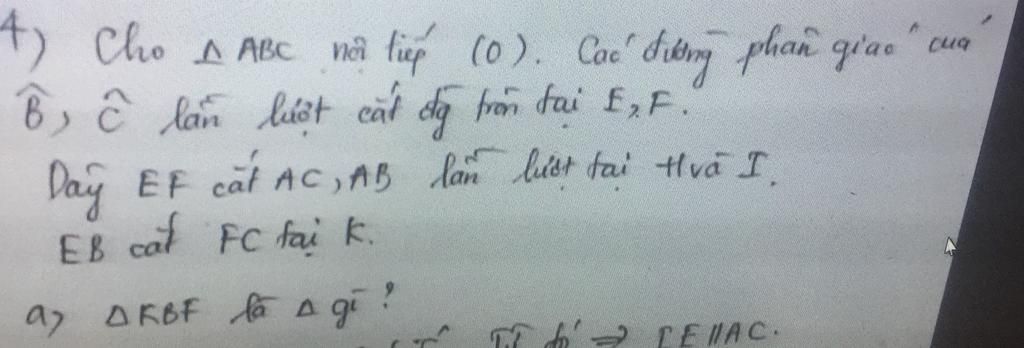 4) Cho △ ABC nội tiếp (O). Các đường phân giác của
B̂, Ĉ lần lượt cắt đg tròn tại E, F.
Dây EF cắt AC, AB lần lượt tại H và I.
EB cắt FC tại K.
a) △KBF là △ gì?
⇒ IE//AC.